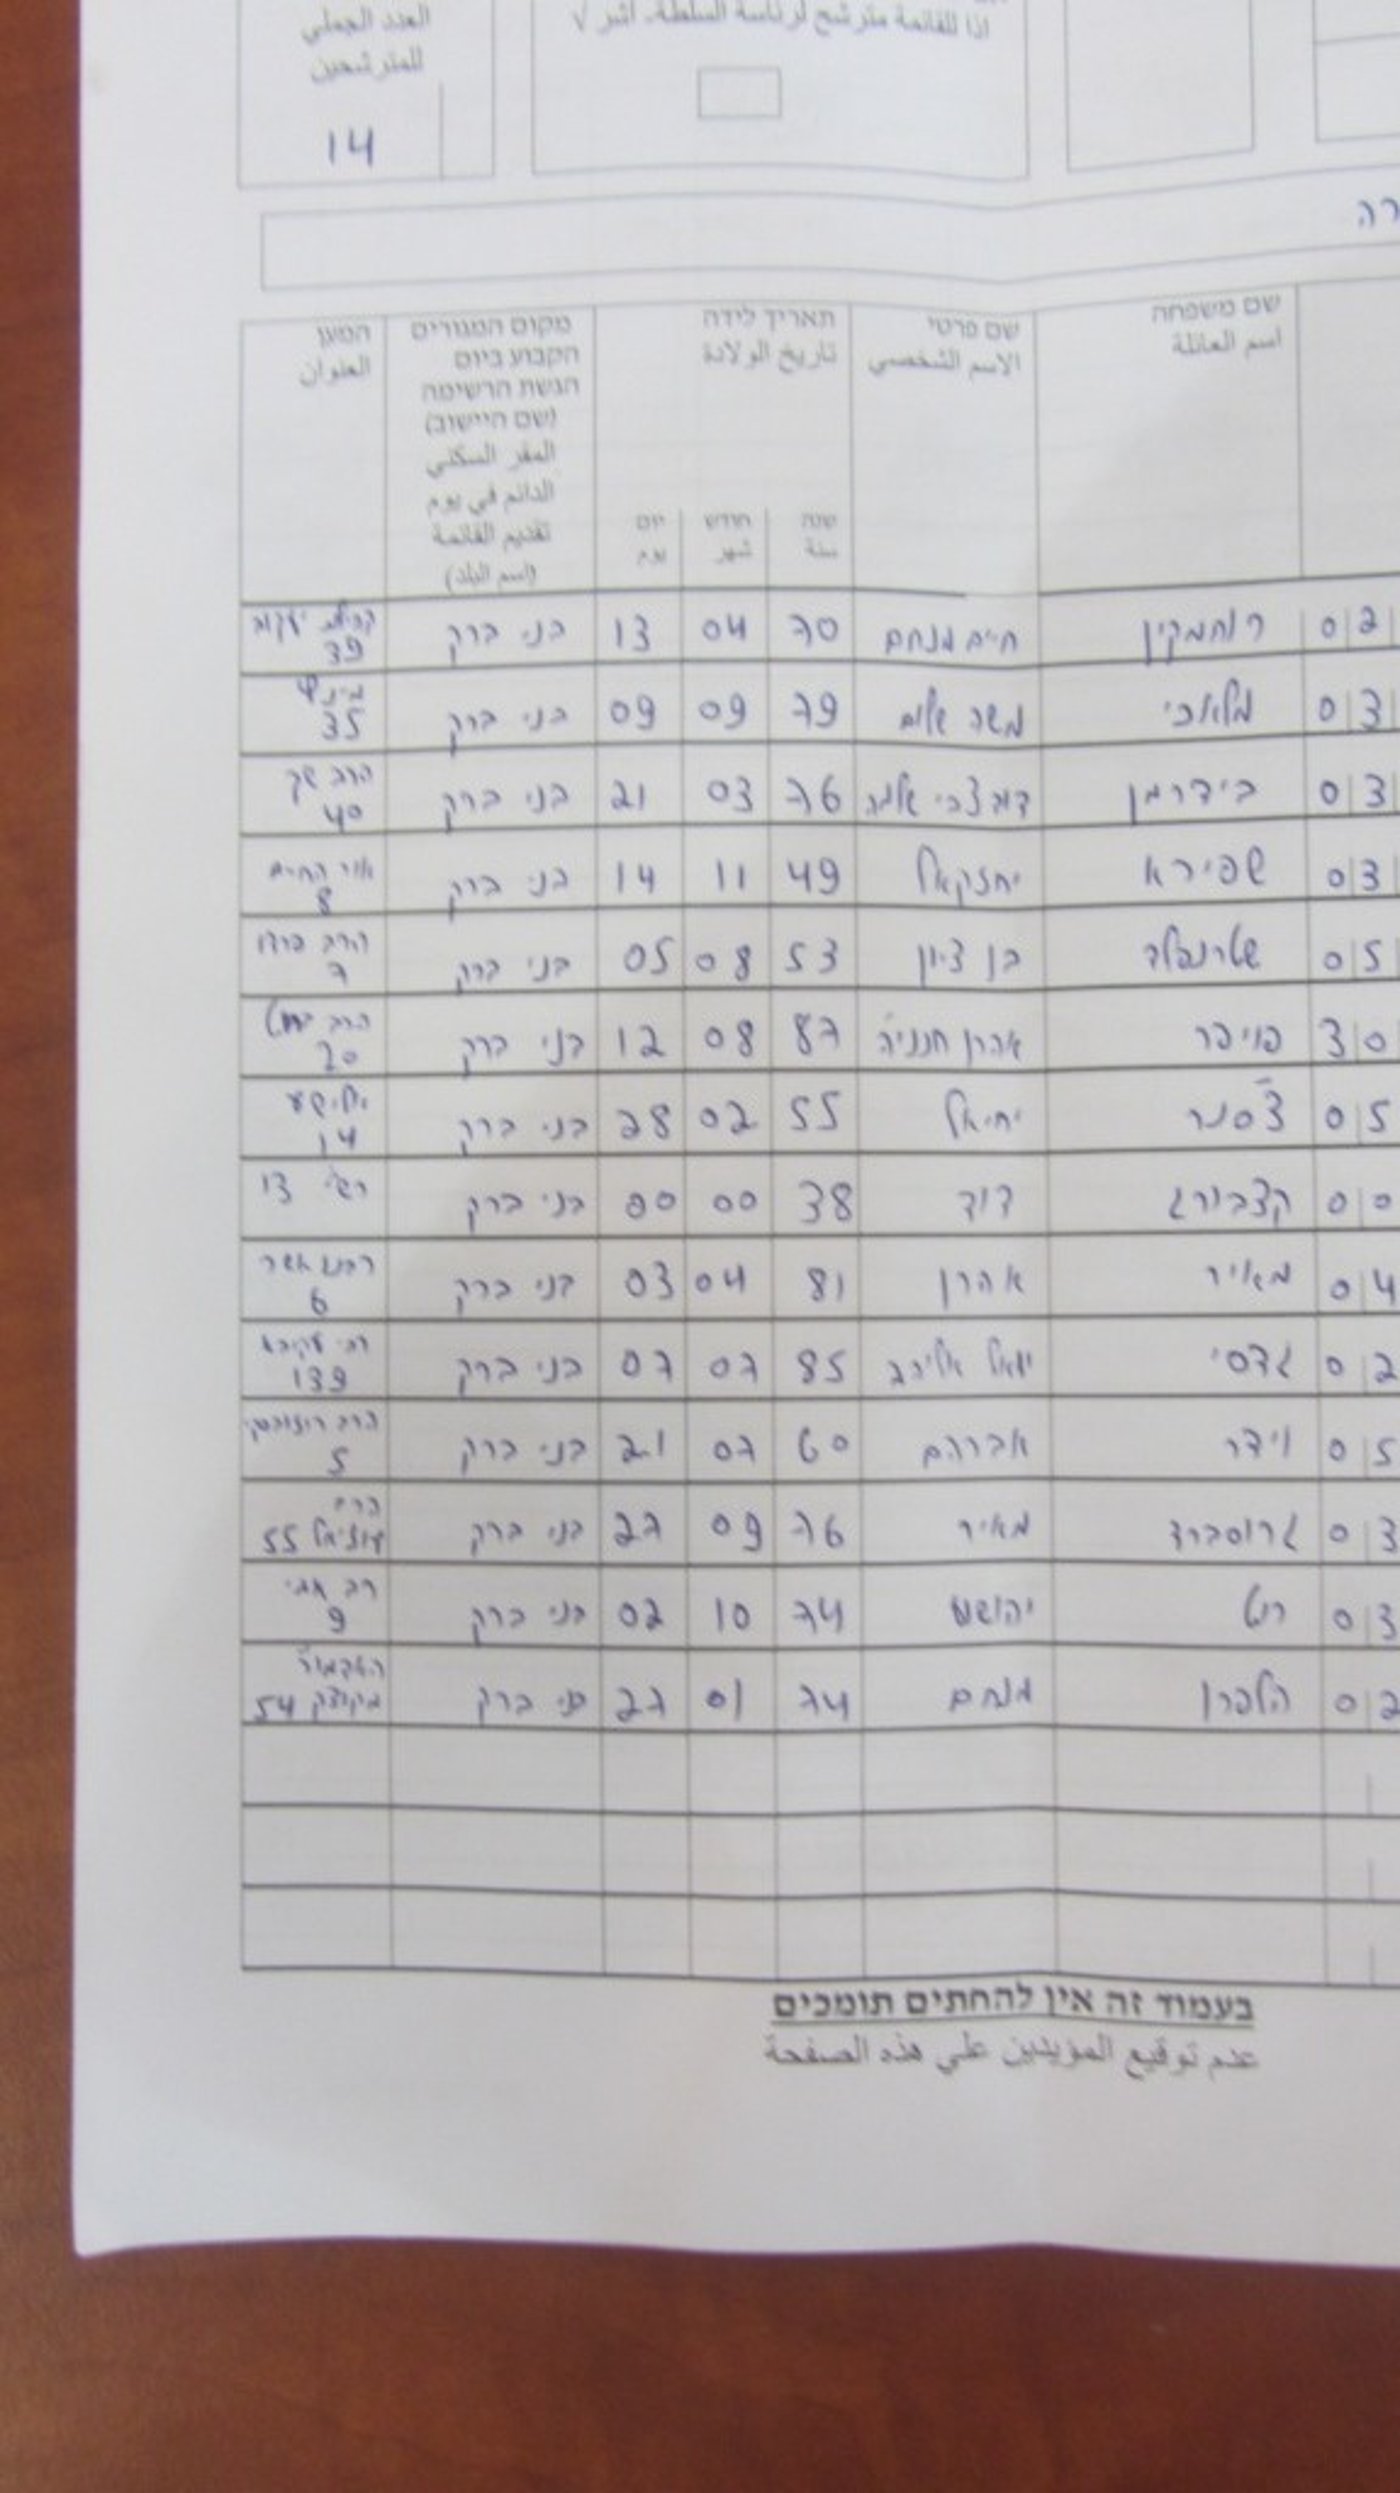 العدد الجملي
للمترشحين
14
اذا للقائمة مترشح لرئاسة السلطة، اشر √
רה
שם משפחה
اسم العائلة
שם פרטי
الاسم الشخصي
תאריך לידה
تاريخ الولادة
שנה
سنة
חודש
شهر
יום
يوم
מקום המגורים
הקבוע ביום
הגשת הרשימה
(שם היישוב)
المقر السكني
الدائم في يوم
تقديم القائمة
(اسم البلد)
המען
العنوان
02 רוחמקין חיים מנחם 70 04 13 בני ברק קהילות יעקב 39
03 מלאכי משה שלום 79 09 09 בני ברק 35
03 בידרמן דוב צבי אלתר 76 03 21 בני ברק הרב שך 40
03 שפירא יחזקאל 49 11 14 בני ברק אור החיים 8
05 שטרנפלד בן ציון 53 08 05 בני ברק הרב 7
30 פויפר אהרן חנניה 87 08 12 בני ברק הרב 20
05 צ'סנר יחיאל 55 02 28 בני ברק אלישע 14
00 קצבורג דוד 38 00 00 בני ברק רש"י 13
04 מאיר אהרן 81 04 03 בני ברק רבנו אשר 6
02 גדסי יואל אלירב 85 07 07 בני ברק רבי עקיבא 139
05 וידר אברהם 60 07 21 בני ברק הרב 5
03 גרוסברד מאיר 76 09 27 בני ברק הרב עוזיאל 55
03 רט יהושע 74 10 02 בני ברק רב אמי 9
02 הלפרן מנחם 74 01 27 בני ברק האדמו"ר מקוצק 54
בעמוד זה אין להחתים תומכים
عدم توقيع المؤيدين على هذه الصفحة